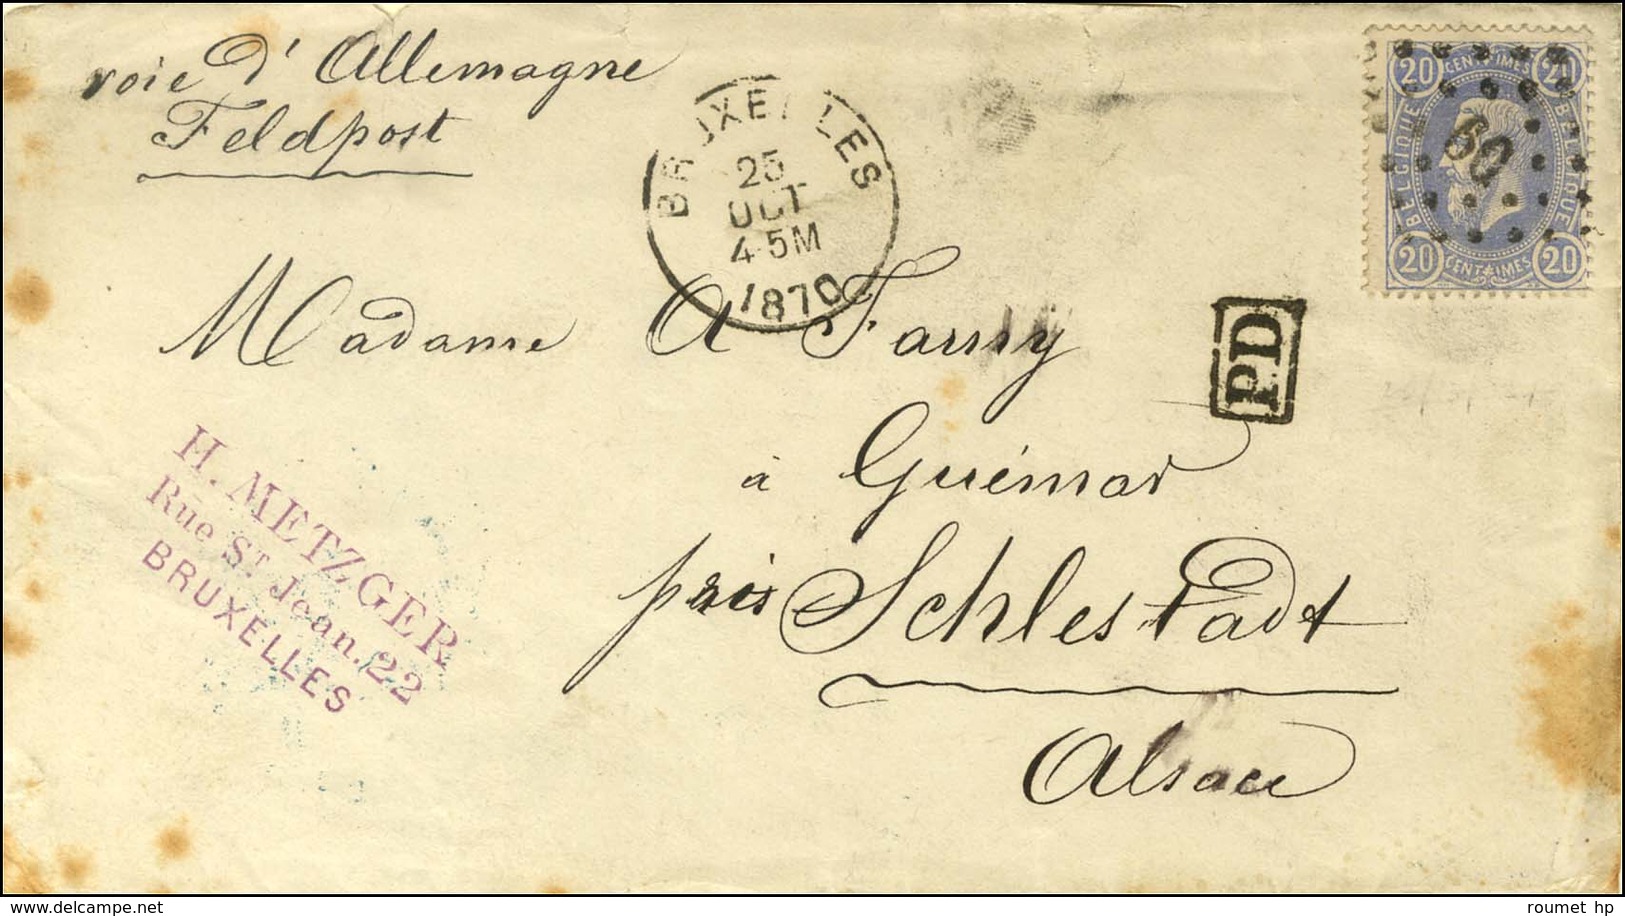 voie d'Allemagne
Feldpost
BRUXELLES
25
OCT
4-5M
1870
20 CENTIMES 20
BELGIQUE
60
BELGIQUE
20 CENTIMES 20
PD
Madame A Fanny
à Guémar
près Schlestadt
Alsace
H. METZGER
Rue St Jean. 22
BRUXELLES
roumet hp